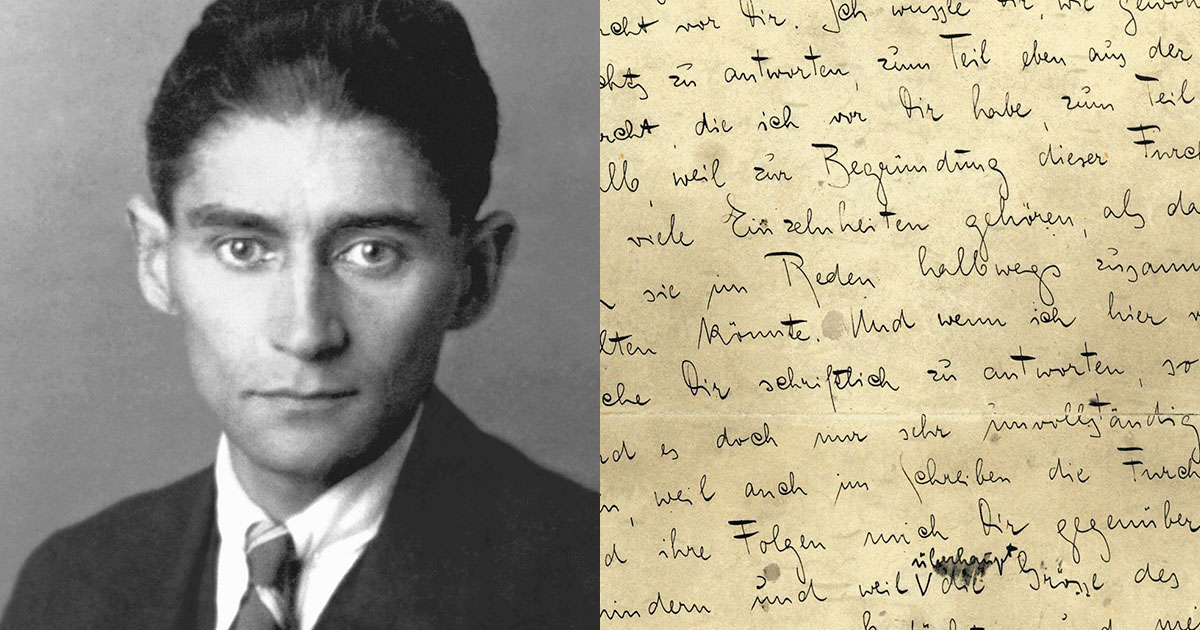 cht vor Dir. Ich wusste Dir, wie gewöhn
chts zu antworten, zum Teil eben aus der
rcht, die ich vor Dir habe, zum Teil
lb, weil zur Begründung dieser Furch
viele Einzelnheiten gehören, als da
sie im Reden halbwegs zusamm
lten könnte. Und wenn ich hier v
che Dir schriftlich zu antworten, so
d es doch nur sehr unvollständig
n, weil auch im Schreiben die Furch
d ihre Folgen mich Dir gegenüber
überhaupt
indern und weil die Grösse des